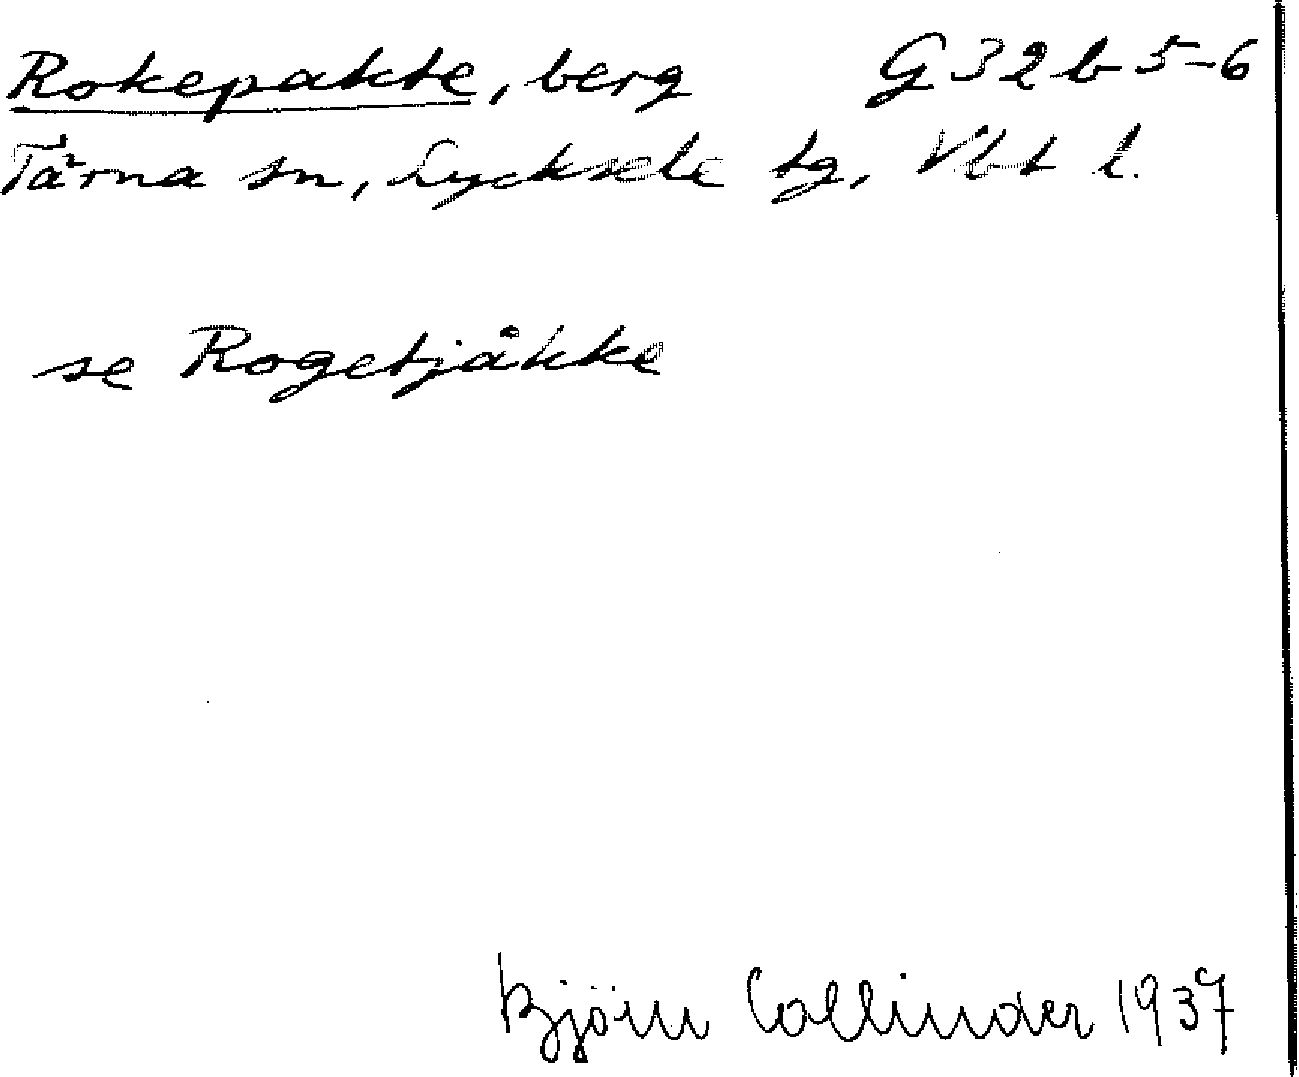 Rokepakte, berg G 32 b 5-6
Tärna sn, Lycksele tg, Vbt l.
se Rogetjåkke
Björn Collinder 1937